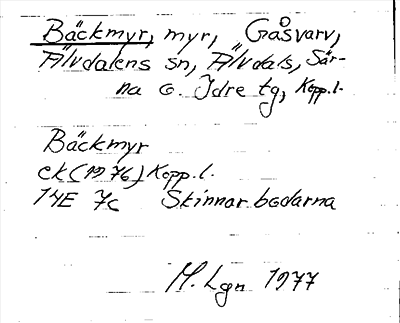 Bäckmyr, myr, Gåsvarv,
Älvdalens sn, Älvdals, Sär-
na o. Idre tg, Kopp.l.
Bäckmyr
ek (1976) Kopp.l.
14E 7c Skinnarbodarna
M. Lgn 1977